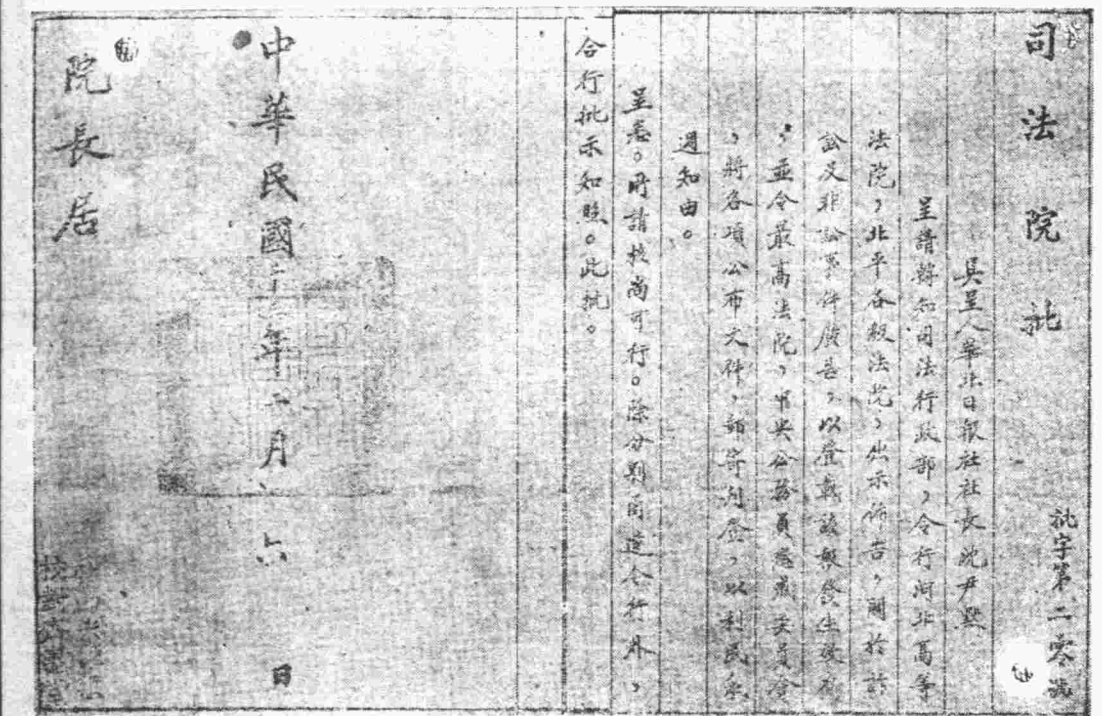 司法院批
批字第二零號
具呈人華北日報社社長沈尹默
呈請轉知司法行政部，令行河北高等
法院，北平各級法院，出示佈告，關於訴
訟及非訟事件廣告，以登載該報發生效力
，並令最高法院，中央公務員懲戒委員會
，將各項公布文件，郵寄刊登，以利民眾
週知由。
呈悉。所請核尚可行。除分別函達令行外，
合行批示知照。此批。
中華民國二十 年二月六日
院長居
校對